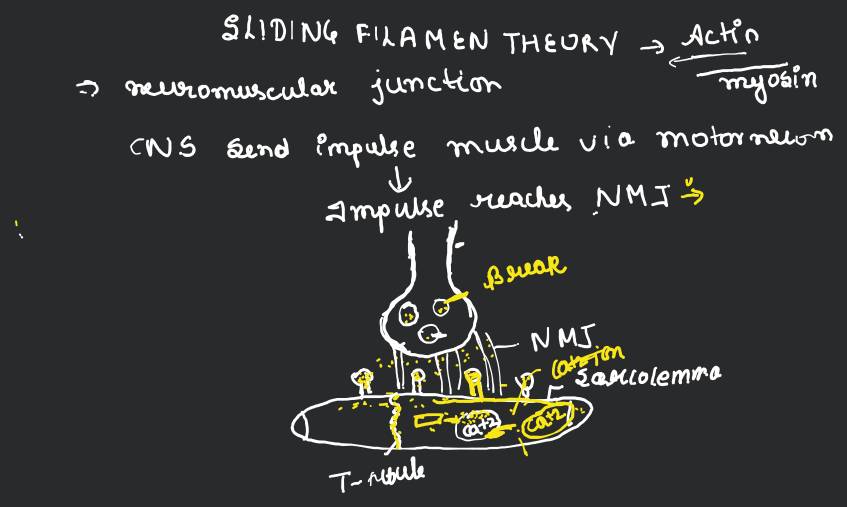 SLIDING FILAMEN THEORY → Actin
myosin
⇒ neuromuscular junction
CNS send impulse muscle via motorneuron
↓
Impulse reaches NMJ →
Break
NMJ
Cation
Sarcolemma
Ca+2 Ca+2
T-tubule